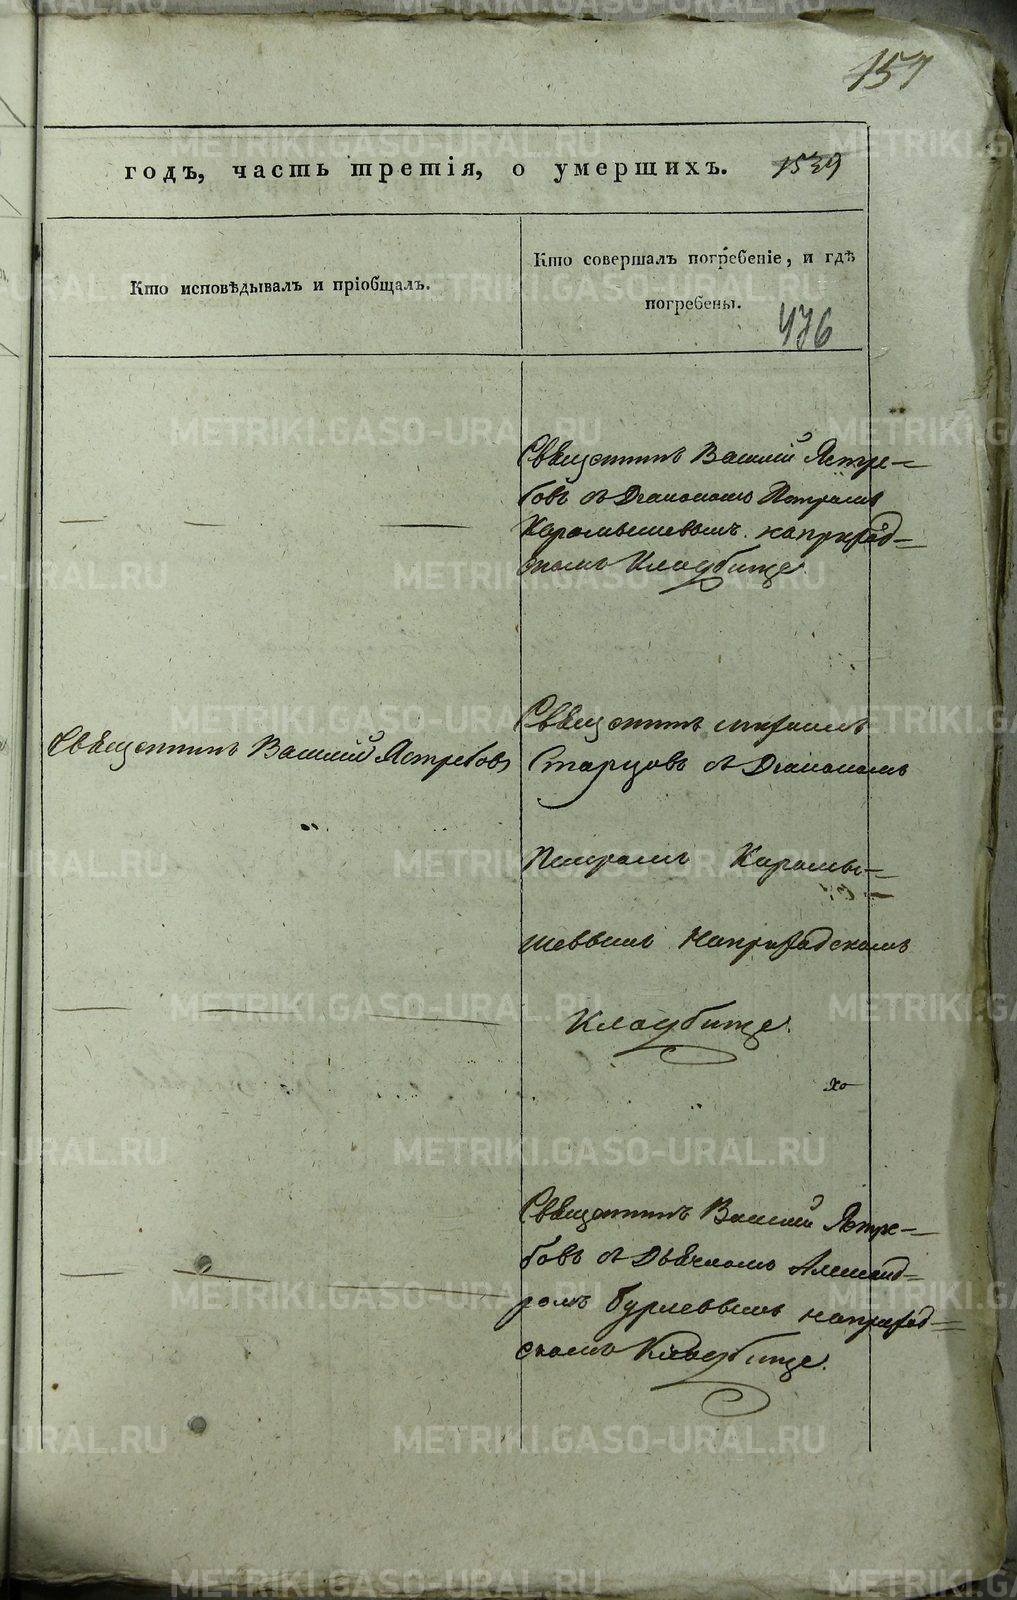 157
годъ, часть третія, о умершихъ. 1539
Кто исповѣдывалъ и пріобщалъ.
Кто совершалъ погребеніе, и гдѣ
погребены.
476
Священникъ Василій Ястре=
бовъ съ Діакономъ Петромъ
Карамышевымъ. наприход=
скомъ Кладбище.
Священникъ
Старцовъ съ Діакономъ
Священникъ Василій Ястребовъ
Петромъ Карамы=
шеввымъ Наприходскомъ
Кладбище.
Священникъ Василій Ястре=
бовъ съ Дьячкомъ Александ=
ромъ Бурлеввымъ наприход=
скомъ Кладбище.
METRIKI.GASO-URAL.RU